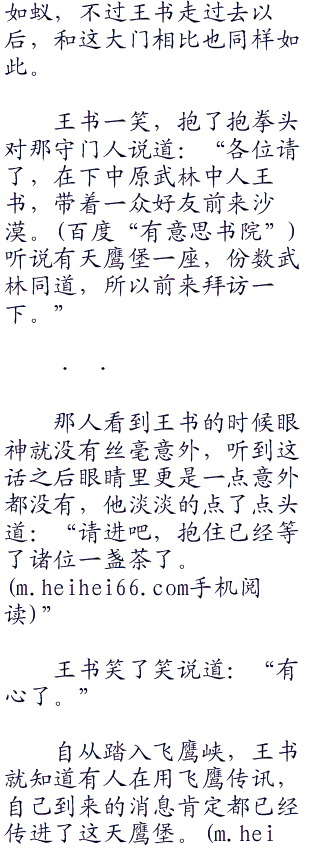 如蚁，不过王书走过去以
后，和这大门相比也同样如
此。
王书一笑，抱了抱拳头
对那守门人说道：“各位请
了，在下中原武林中人王
书，带着一众好友前来沙
漠。(百度“有意思书院”)
听说有天鹰堡一座，份数武
林同道，所以前来拜访一
下。”
． ．
那人看到王书的时候眼
神就没有丝毫意外，听到这
话之后眼睛里更是一点意外
都没有，他淡淡的点了点头
道：“请进吧，抱住已经等
了诸位一盏茶了。
(m.heihei66.com手机阅
读)”
王书笑了笑说道：“有
心了。”
自从踏入飞鹰峡，王书
就知道有人在用飞鹰传讯，
自己到来的消息肯定都已经
传进了这天鹰堡。(m.hei